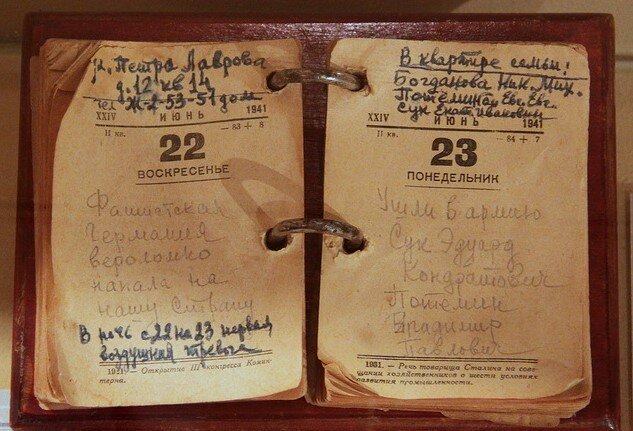 ул. Петра Лаврова
д. 12 кв 14
тел Ж-2-53-51 дом
XXIV ИЮНЬ 1941
II кв. — 83 + 8
22
ВОСКРЕСЕНЬЕ
Фашистская
Германия
вероломно
напала на
нашу Страну
В ночь с 22 на 23 первая
воздушная тревога
1921 — Открытие III конгресса Комин-
терна.
В квартире семьи:
Богданова Ник. Мих.
Потёминой Евг. Евг.
Сук Екат Ивановны
XXIV ИЮНЬ 1941
II кв. — 84 + 7
23
ПОНЕДЕЛЬНИК
Ушли в армию
Сук Эдуард
Кондратович
Потёмин
Владимир
Павлович
1931. — Речь товарища Сталина на сове-
щании хозяйственников о шести условиях
развития промышленности.